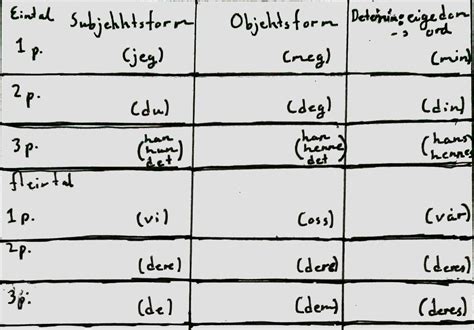 Eintal Subjekhtsform Objehtsform Determin: eigedom
-s ord
1 p. (jeg) (meg) (min)
2 p. (du) (deg) (din)
3 p. (han hun det) (han henne det) (hans hennes
fleirtal
1 p. (vi) (oss) (vår)
2p. (dere) (dere) (deres)
3p. (de) (dem) (deres)